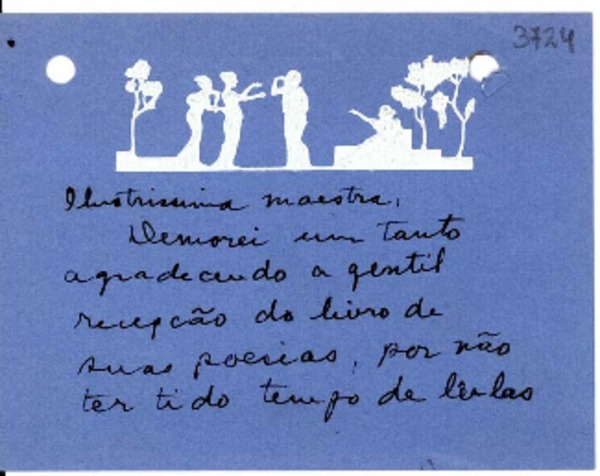 3724
Ilustrissima maestra,
Demorei um tanto
agradecendo a gentil
recepção do livro de
suas poesias, por não
ter tido tempo de lêr-las